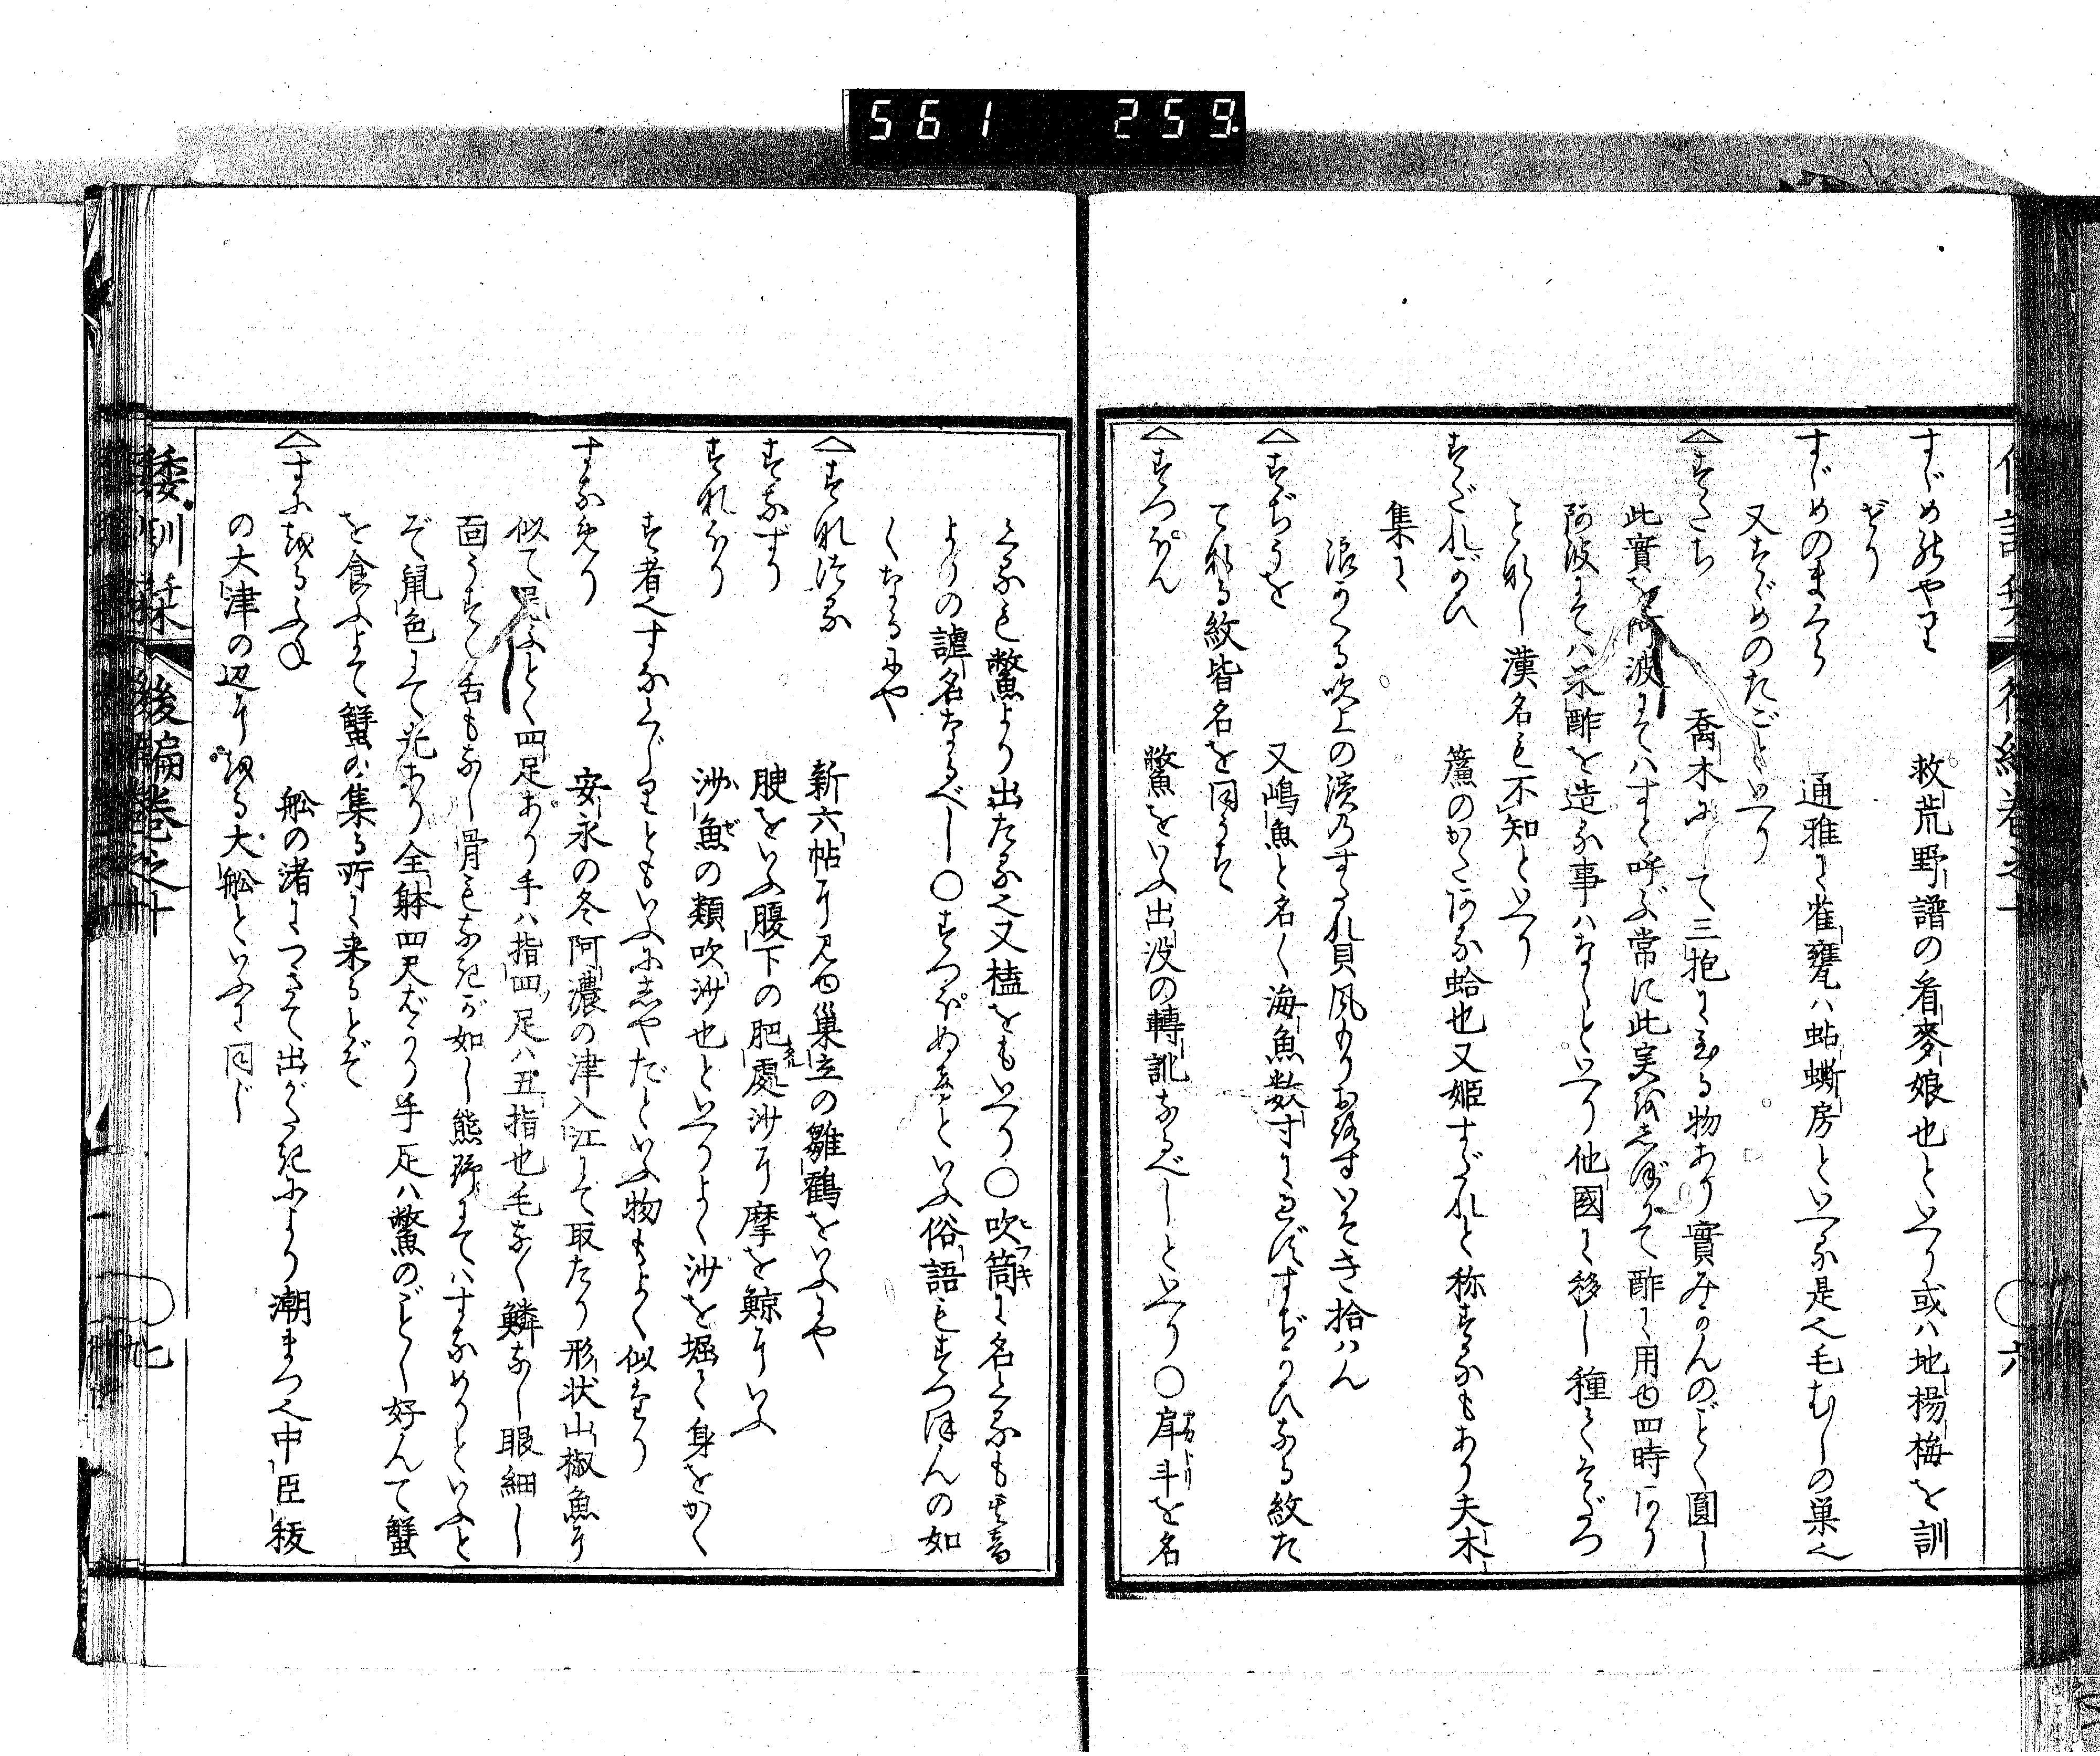 561 259
すゞめのやり 救荒野譜の看麥娘也といへり或ハ地楊梅を訓
ぜり
すゞめのまくら 通雅に雀甕ハ蛄蟖房といへる是也毛むしの巣也
又すゞめのたごといへり
すだち 喬木にして三抱に至る物あり實みかんのごとく圓し
此實を阿波にてハすと呼ぶ常に此実をしぼりて酢に用ゆ四時あり
阿波にてハ米酢を造る事ハなしといへり他國に移し種てそだつ
ことなし漢名も不知といへり
すだれがひ 簾のかたある蛤也又姫すだれと称するもあり夫木
集に
浪かくる吹上の濱のすだれ貝風もりおろすいそき拾はん
すぢうを 又嶋魚と名く海魚数寸にすぎずすぢかひなる紋た
てなる紋皆名を同うす
すつほん 鼈をいふ出没の轉訛なるべしといへり〇戽斗を名
くるも鼈より出たる也又榼をもいへり〇吹筒に名くるも其音
よりの謔名なるべし〇すつぽぬけといふ俗語もすつほんの如
くなるにや
すなつる 新六帖に見ゆ巣立の雛鶴をいふにや
すなずり 腴をいふ腹下の肥處沙に摩を鯨にいふ
すなほり 沙魚の類吹沙也といへりよく沙を堀て身をかく
す者也すなくじりともいふにしやだといふ物もよく似たり
すなめり 安永の冬阿濃の津入江にて取たり形状山椒魚に
似て尾ふとく四足あり手ハ指四ツ足ハ五指也毛なく鱗なし眼細し
面うすく舌もなし骨もなきが如し熊野にてハすなめりといふと
ぞ鼠色にて光あり全躰四尺ばかり手足ハ鼈のごとし好んて蟹
を食ふよて蟹の集る所に来るとぞ
すにをるふね 舩の渚につきて出がたきにより潮まつ也中臣秡
の大津の辺にをる大舩といふに同じ
倭訓栞 後編巻之十 七